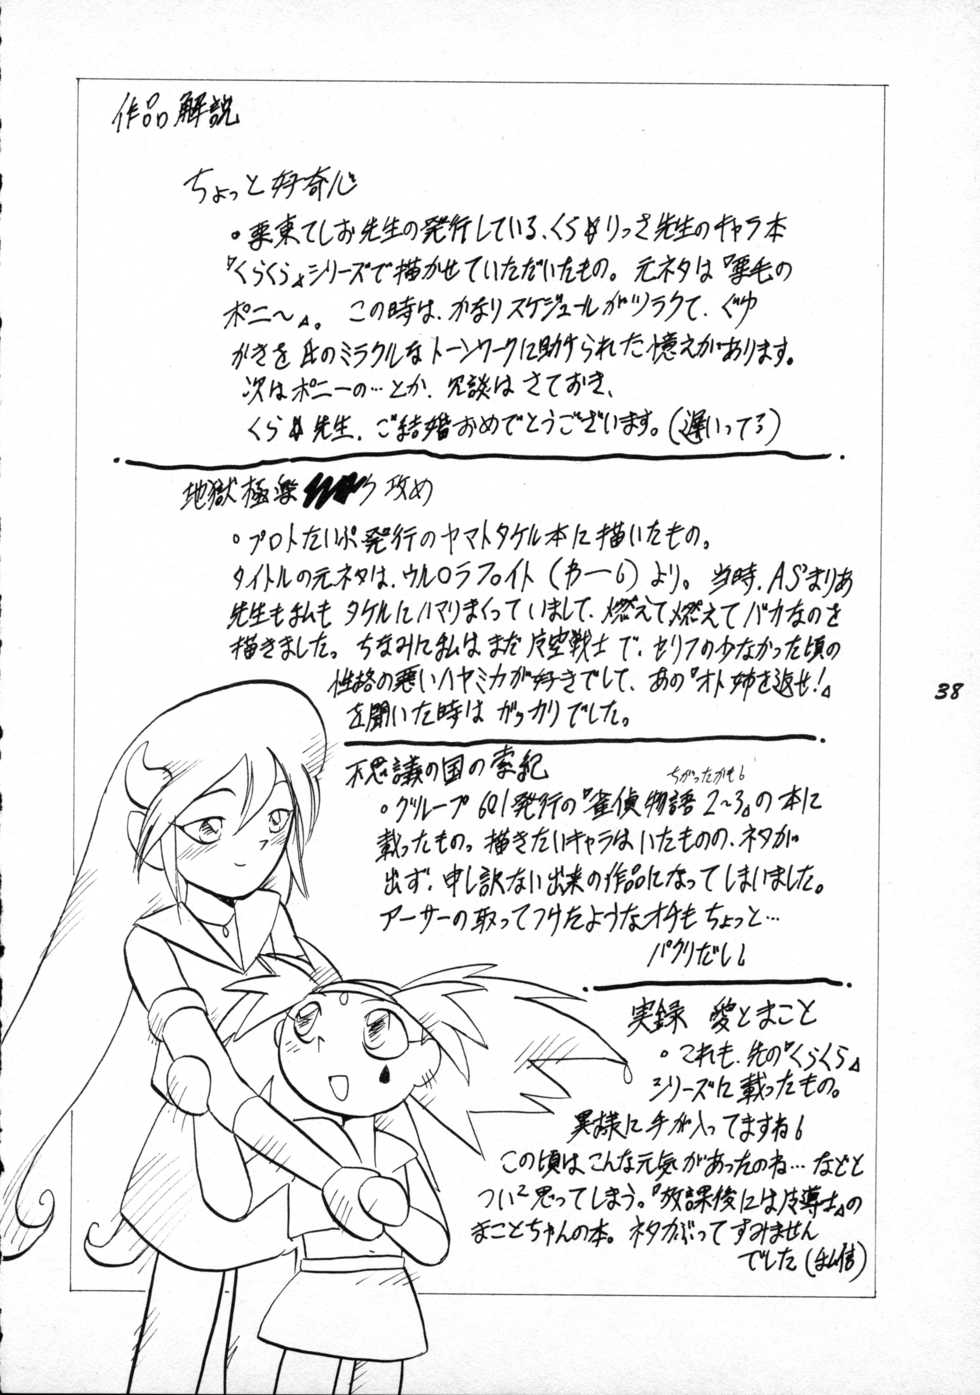 作品解説
ちょっと好奇心
。栗東てしお先生の発行している、くら♮りっさ先生のキャラ本
『くらくら』シリーズで描かせていただいたもの。元ネタは『栗毛の
ポニ〜』。この時は、かなりスケジュールがツラクて、ぐゆ
かきを氏のミラクルなトーンワークに助けられた憶えがあります。
次はポニーの…とか、冗談はさておき、
くら♮先生、ご結婚おめでとうございます。(遅いってろ)
地獄極楽 攻め
。プロトたいぷ発行のヤマトタケル本に描いたもの。
タイトルの元ネタは、ウルロラフロイト(わー6)より。当時、AS'まりあ
先生も私もタケルにハマりまくっていまして、燃えて燃えてバカなのを
描きました。ちなみに私はまだ 戦士で、セリフの少なかった頃の
性格の悪いハヤミカが好きでして、あの『オト姉を返せ!』
を聞いた時はガッカリでした。
不思議の国の索紀
ちがったかも6
。グループ601発行の『雀偵物語2〜3』の本に
載ったもの。描きたいキャラはいたものの、ネタが
出ず、申し訳ない出来の作品になってしまいました。
アーサーの取ってつけたようなオチもちょっと…
パクリだし6
実録 愛とまこと
。これも、先の『くらくら』
シリーズに載ったもの。
異様に手が入ってますね6
この頃はこんな元気があったのね…などと
つい2思ってしまう。『放課後には 士』の
まことちゃんの本。ネタかぶってすみません
でした(私信)
38